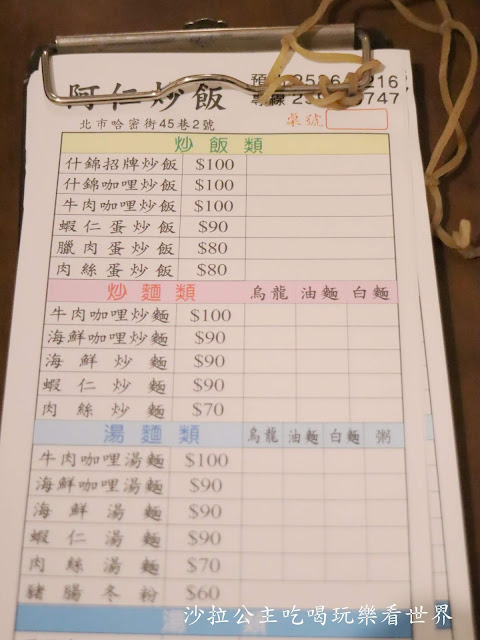 阿仁炒飯
北市哈密街45巷2號
桌號
炒飯類
什錦招牌炒飯 $100
什錦咖哩炒飯 $100
牛肉咖哩炒飯 $100
蝦仁蛋炒飯 $90
臘肉蛋炒飯 $80
肉絲蛋炒飯 $80
炒麵類 烏龍 油麵 白麵
牛肉咖哩炒麵 $100
海鮮咖哩炒麵 $90
海鮮炒麵 $90
蝦仁炒麵 $90
肉絲炒麵 $70
湯麵類 烏龍 油麵 白麵 粥
牛肉咖哩湯麵 $100
海鮮咖哩湯麵 $90
海鮮湯麵 $90
蝦仁湯麵 $90
肉絲湯麵 $70
豬腸冬粉 $60
沙拉公主吃喝玩樂看世界